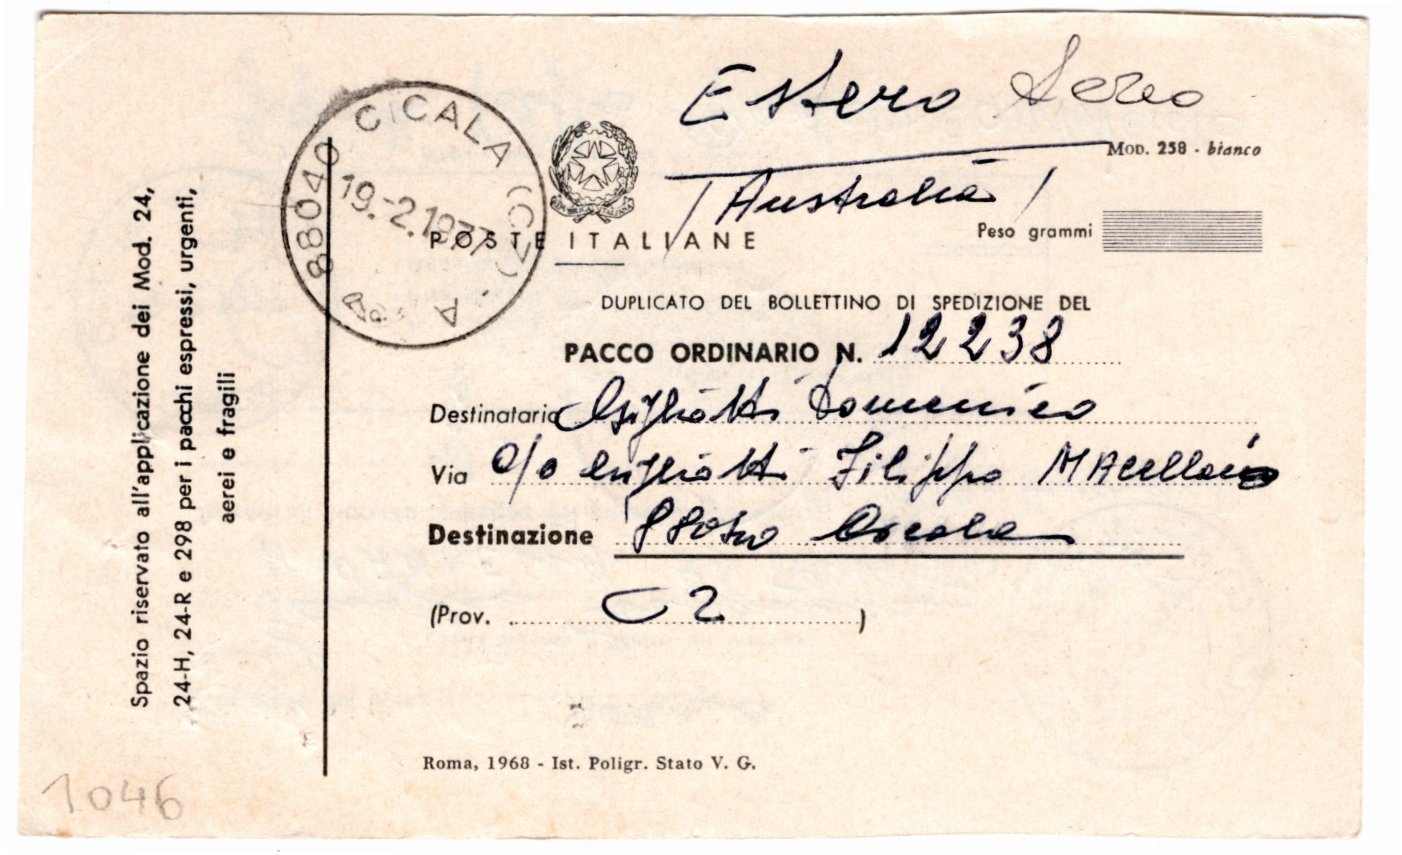 Estero Aereo
Mod. 258 - bianco
(Australia)
88040 CICALA (CZ)
19.-2.1977
A
POSTE ITALIANE
Peso grammi
DUPLICATO DEL BOLLETTINO DI SPEDIZIONE DEL
PACCO ORDINARIO N. 12238
Destinatario Gigliotti Domenico
Via c/o Gigliotti Filippo MAcellaio
Destinazione Cicala
(Prov. CZ)
Roma, 1968 - Ist. Poligr. Stato V. G.
Spazio riservato all'applicazione dei Mod. 24,
24-H, 24-R e 298 per i pacchi espressi, urgenti,
aerei e fragili
1046